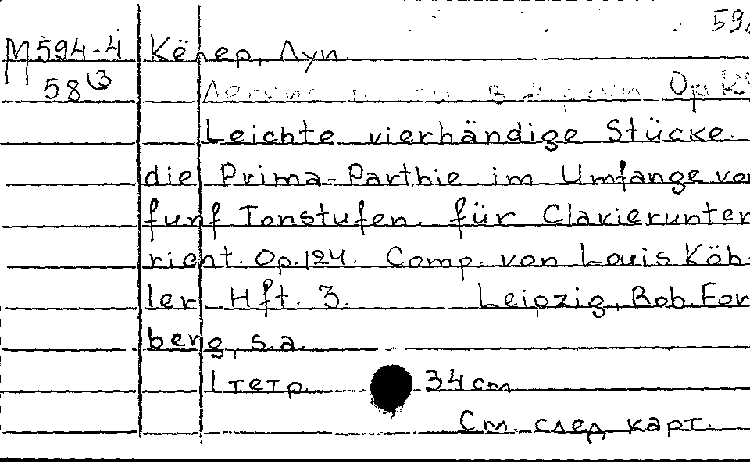 59
М 594-4 Кёлер, Луи
58 (3 в 2 Op
Leichte vierhändige Stücke.
die Prima-Parthie im Umfange von
funf Tonstufen für Clavierunter
richt. Op. 124. Comp. von Louis Köh-
ler Hft. 3. Leipzig, Rob. For
berg, s.a.
1 тетр. 34 cm
См. след карт.